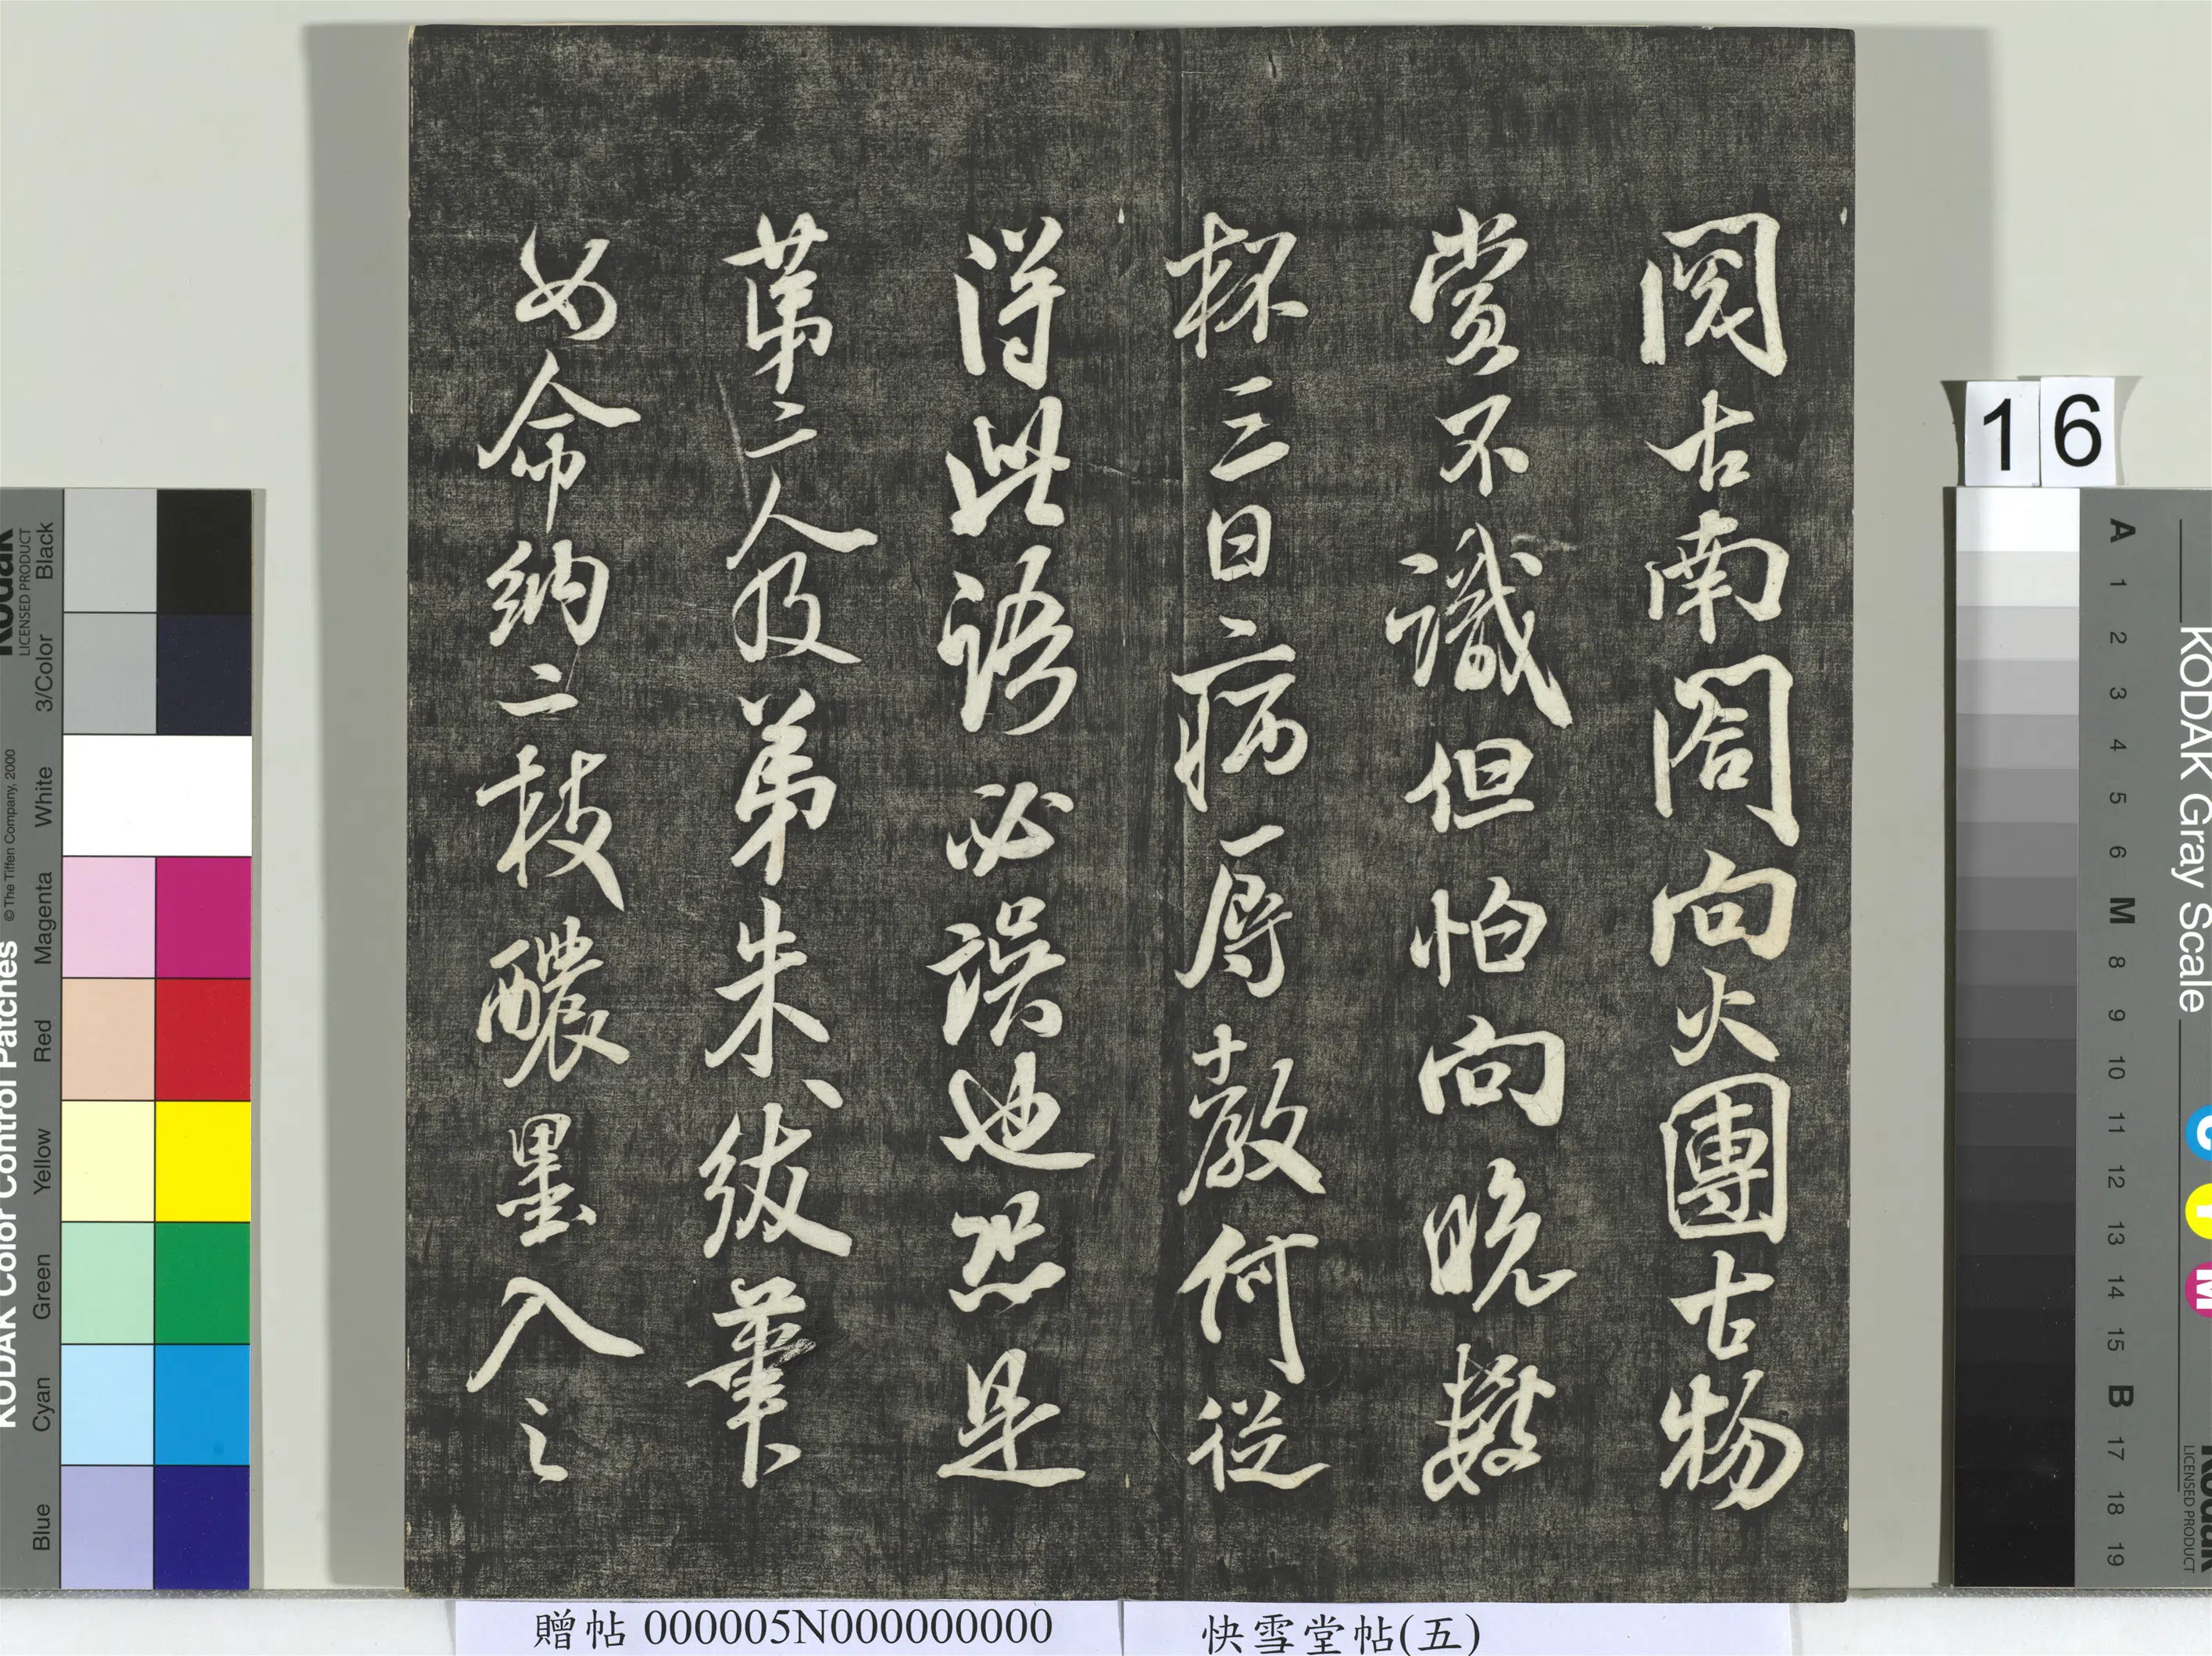 閱古南閣向火團古物
賞不識但怕向晚數
杯三日病辱教何從
得此語必誤也恐是
第二人及弟朱紱筆
如命納二枝醲墨入之
16
贈帖 000005N000000000
快雪堂帖(五)
KODAK Color Control Patches
© The Tiffen Company, 2000
Kodak
LICENSED PRODUCT
Blue Cyan Green Yellow Red Magenta White 3/Color Black
KODAK Gray Scale
C Y M
Kodak
LICENSED PRODUCT
A 1 2 3 4 5 6 M 8 9 10 11 12 13 14 15 B 17 18 19